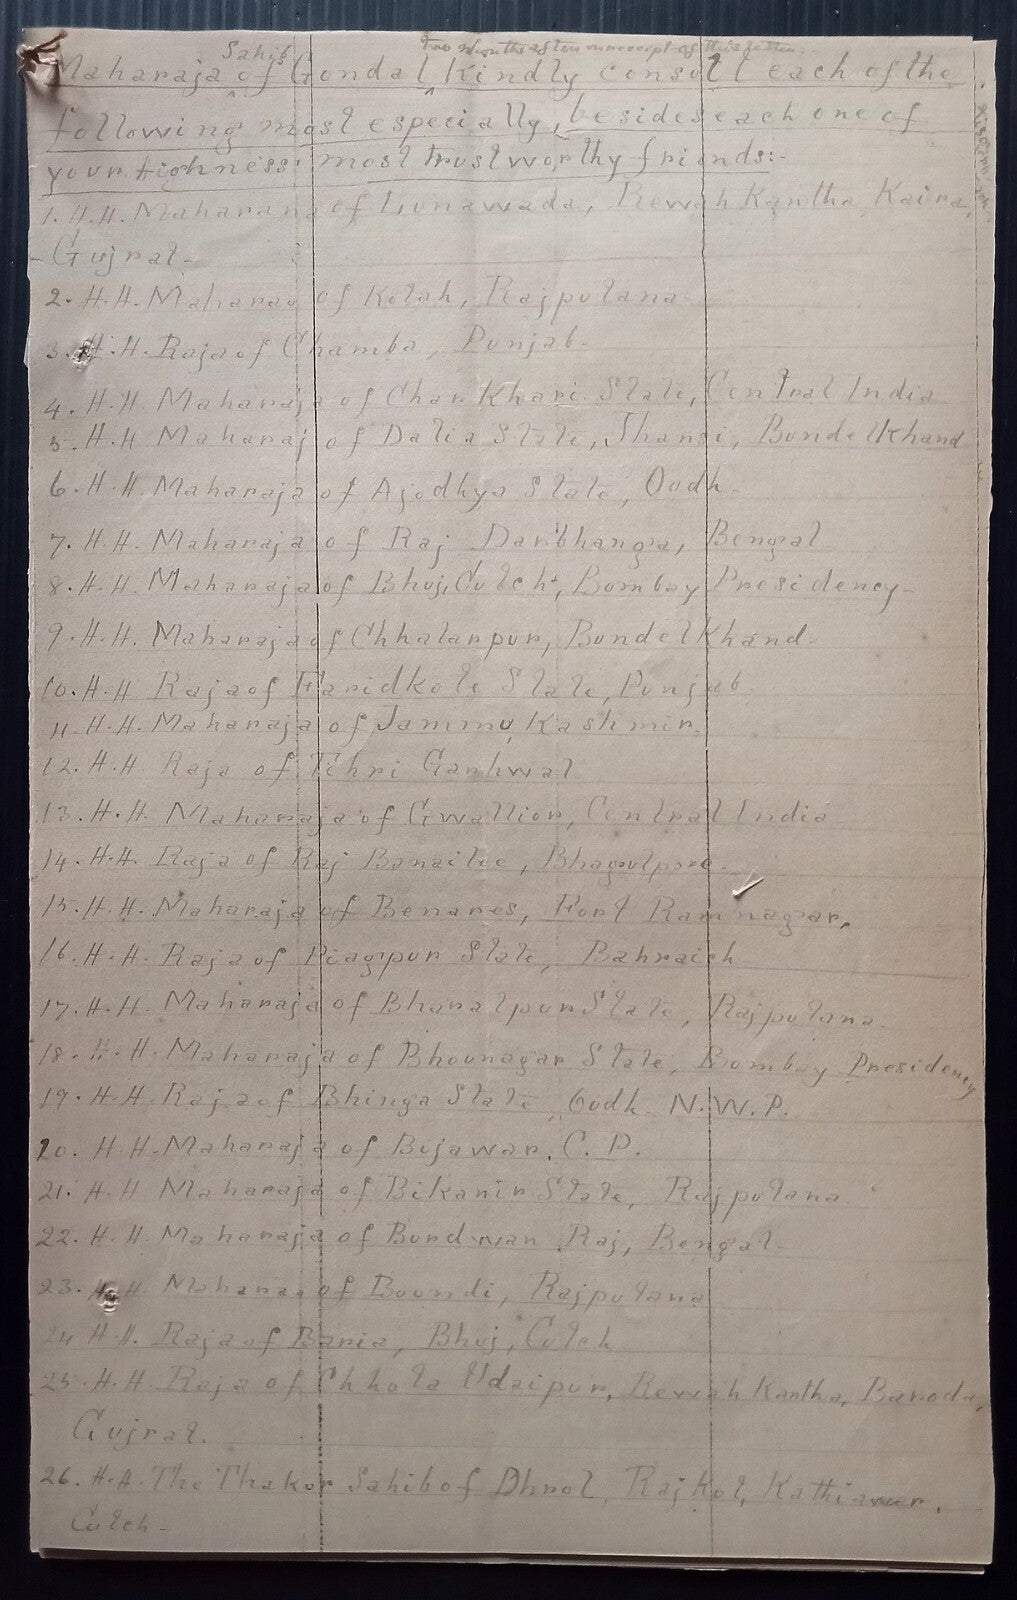 Sahib
Two months after on receipt of this letter...
Maharaja of Gondal Kindly consult each of the
following most especially, besides each one of
your Highness' most trustworthy friends:-
1. H.H. Maharana of Lunawada, Rewah Kantha, Kaira,
- Gujrat -
2. H.H. Maharao of Kotah, Rajputana
3. H.H. Raja of Chamba, Punjab-
4. H.H. Maharaja of CharKhari State, Central India
5. H.H Maharaj of Datia State, Jhansi, BundelKhand
6. H.H. Maharaja of Ajodhya State, Oudh.
7. H.H. Maharaja of Raj Darbhanga, Bengal
8. H.H. Maharaja of Bhuj, Cutch, Bombay Presidency-
9. H.H. Maharaja of Chhatarpur, BundelKhand-
10. H.H Raja of Faridkote State, Punjab
11 H.H. Maharaja of Jammu, Kashmir.
12. H.H Raja of Tehri Garhwal
13. H.H. Maharaja of Gwallior, Central India
14. H.H. Raja of Raj Banailee, Bhagulpore.
15. H.H. Maharaja of Benares, Fort Ramnagar,
16. H.H. Raja of Piagpur State, Bahraich
17. H.H. Maharaja of Bharatpur State, Rajputana.
18. H.H. Maharaja of Bhounagar State, Bombay Presidency
19. H.H. Raja of Bhinga State, Oudh N.W.P.
20. H H. Maharaja of Bijawar, C.P.
21. H.H Maharaja of Bikanir State, Rajputana
22. H.H Maharaja of Burdwan Raj, Bengal-
23. H.H. Maharao of Boondi, Rajputana
24 H.H. Raja of Baria, Bhuj, Cutch
25. H.H. Raja of Chhota Udaipur, Rewah Kantha, Baroda,
Gujrat.
26. H.H. The Thakur Sahib of Dhrol, Rajkot, Kathiawar,
Cutch-